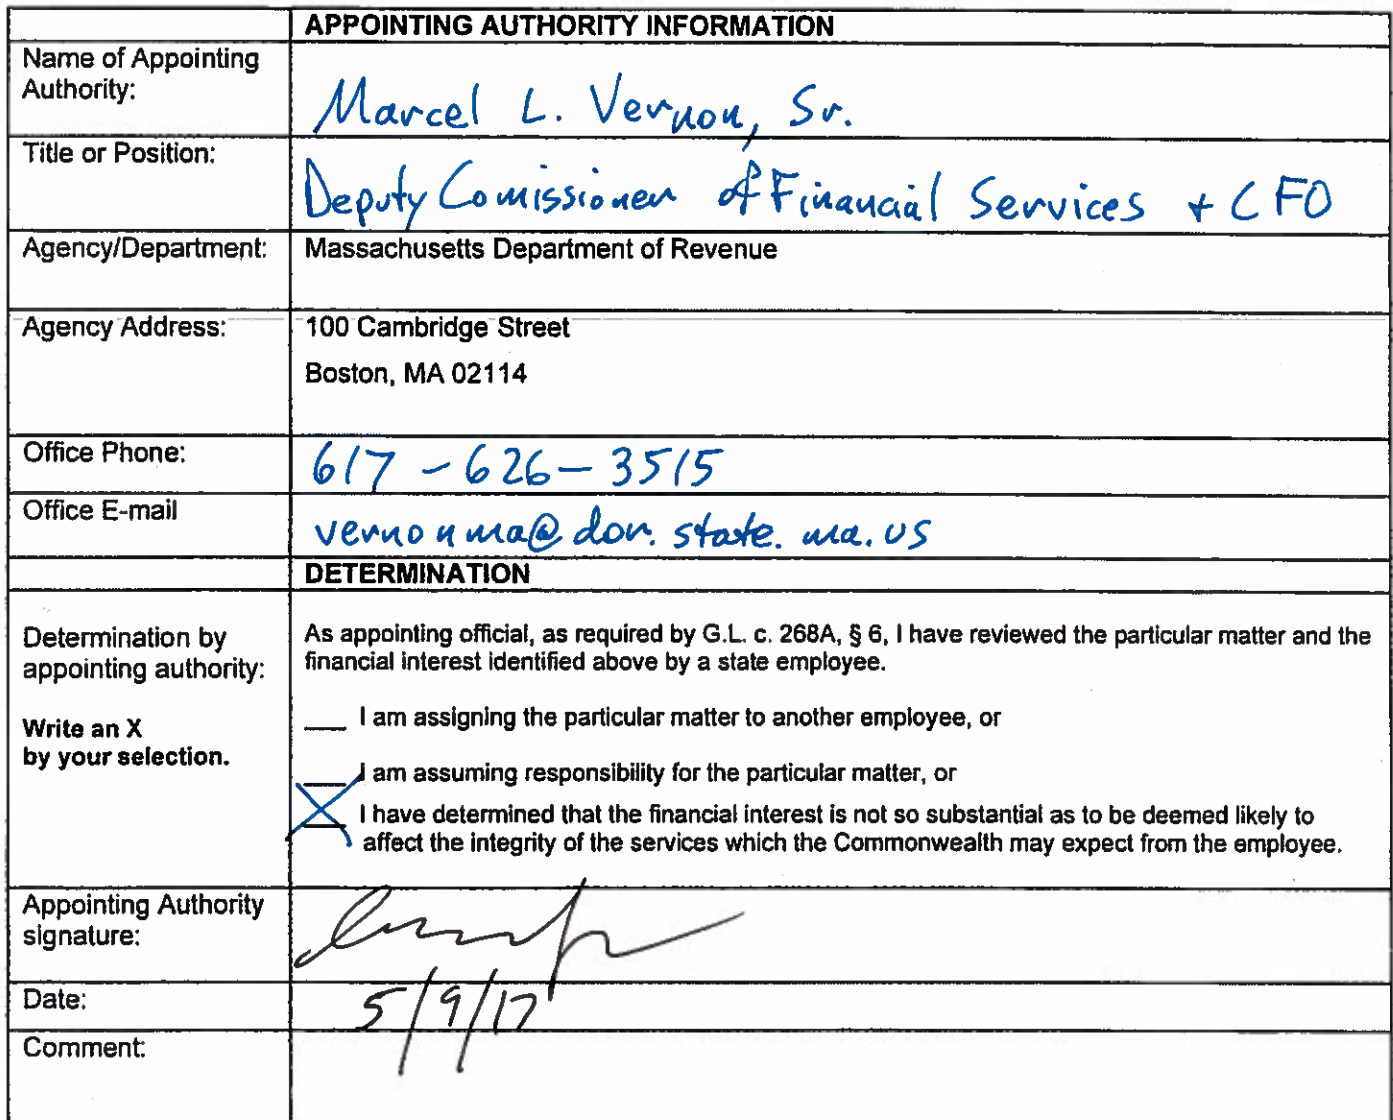 APPOINTING AUTHORITY INFORMATION
Name of Appointing
Authority:
Marcel L. Vernon, Sr.
Title or Position:
Deputy Comissioner of Financial Services + CFO
Agency/Department:
Massachusetts Department of Revenue
Agency Address:
100 Cambridge Street
Boston, MA 02114
Office Phone:
617-626-3515
Office E-mail
vernonma@dor.state.ma.us
DETERMINATION
Determination by
appointing authority:
Write an X
by your selection.
As appointing official, as required by G.L. c. 268A, § 6, I have reviewed the particular matter and the
financial interest identified above by a state employee.
___ I am assigning the particular matter to another employee, or
___ I am assuming responsibility for the particular matter, or
X I have determined that the financial interest is not so substantial as to be deemed likely to
affect the integrity of the services which the Commonwealth may expect from the employee.
Appointing Authority
signature:
Date:
5/9/17
Comment: